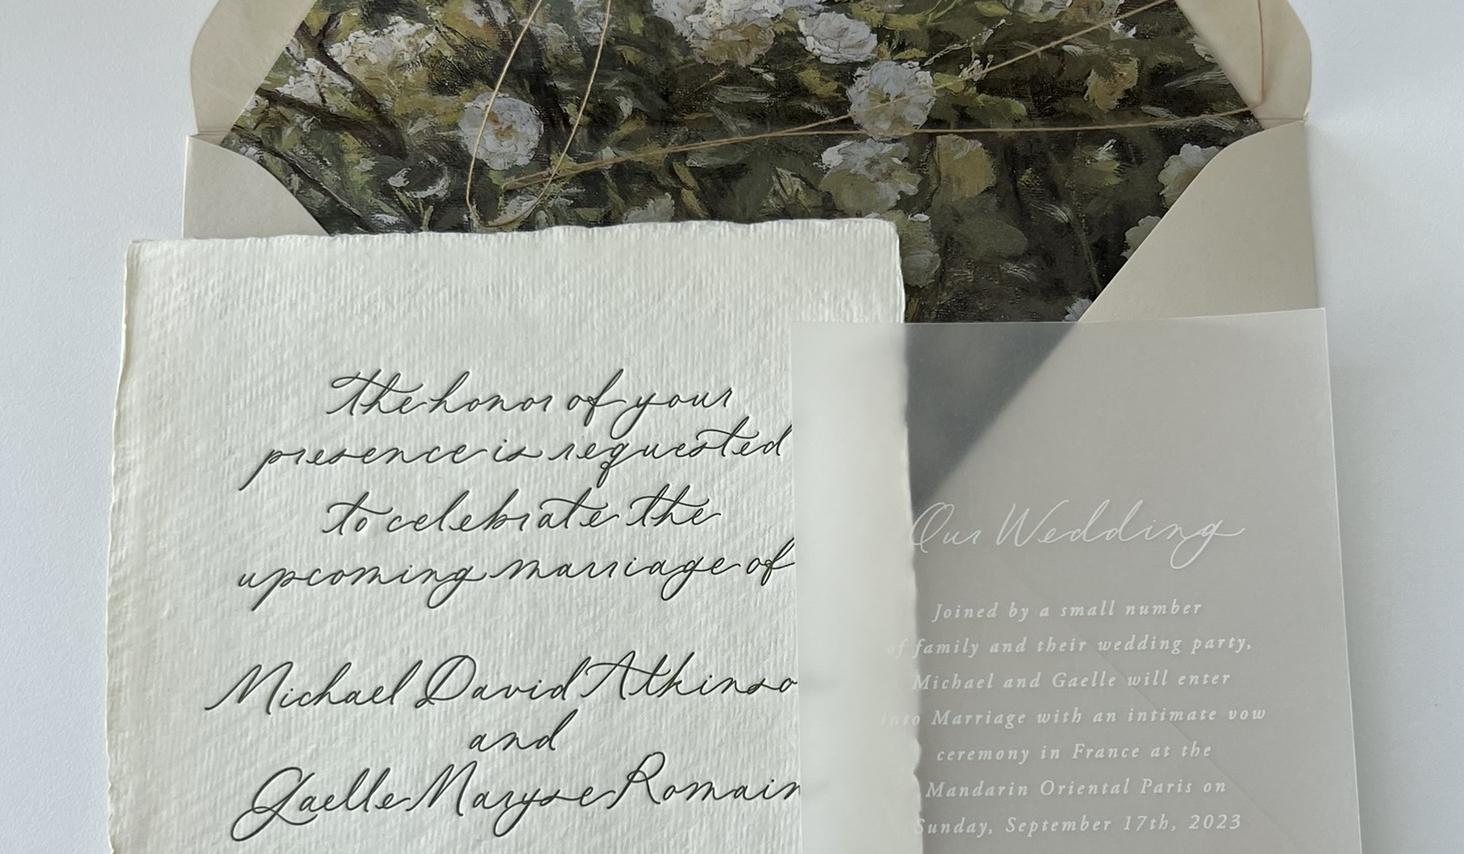 The honor of your
presence is requested
to celebrate the
upcoming marriage of
Michael David Atkinso
and
Gaelle Maryse Romain
Our Wedding
Joined by a small number
of family and their wedding party,
Michael and Gaelle will enter
into Marriage with an intimate vow
ceremony in France at the
Mandarin Oriental Paris on
Sunday, September 17th, 2023